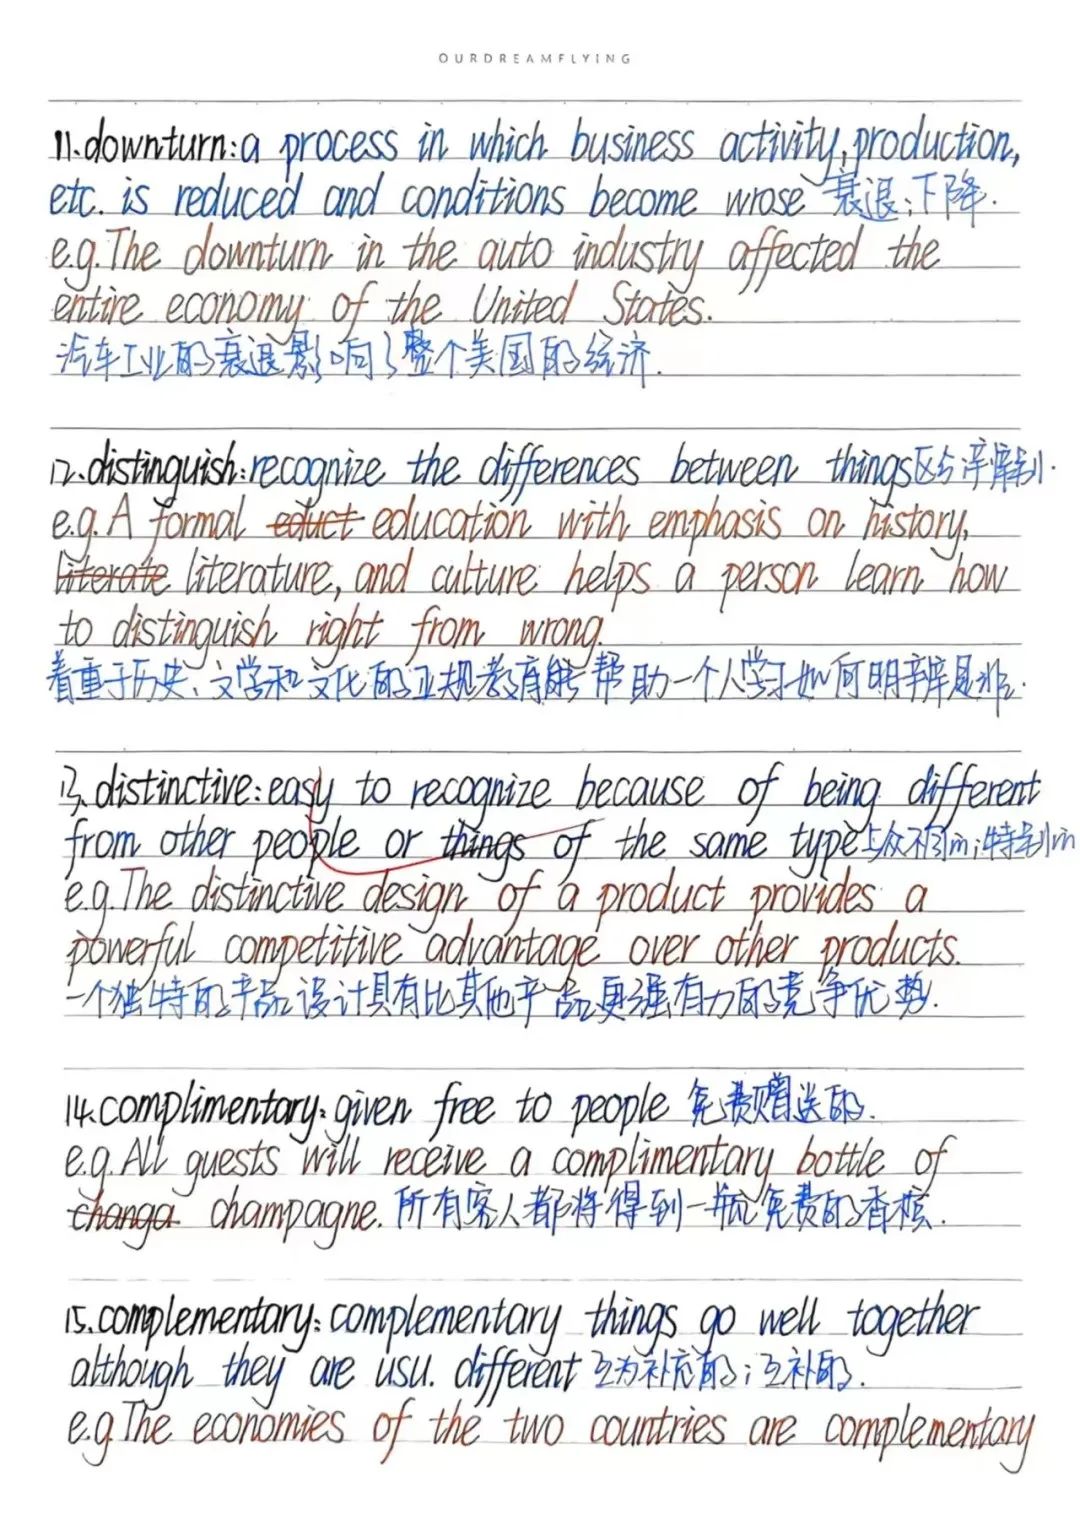 OURDREAMFLYING
11.downturn:a process in which business activity,production,
etc. is reduced and conditions become wrose 衰退;下降.
e.g.The downturn in the auto industry affected the
entire economy of the United States.
汽车工业的衰退影响了整个美国的经济.
12.distinguish:recognize the differences between things区分;辨别.
e.g.A formal educt education with emphasis on history,
literate literature, and culture helps a person learn how
to distinguish right from wrong.
着重于历史、文学和文化的正规教育能帮助一个人学习如何明辨是非.
13.distinctive:easy to recognize because of being different
from other people or things of the same type与众不同的;特别的
e.g.The distinctive design of a product provides a
powerful competitive advantage over other products.
一个独特的产品设计具有比其他产品更强有力的竞争优势.
14.complimentary:given free to people 免费赠送的.
e.g.All guests will receive a complimentary bottle of
changa champagne.所有客人都将得到一瓶免费的香槟.
15.complementary:complementary things go well together
although they are usu. different 互为补充的;互补的.
e.g.The economies of the two countries are complementary